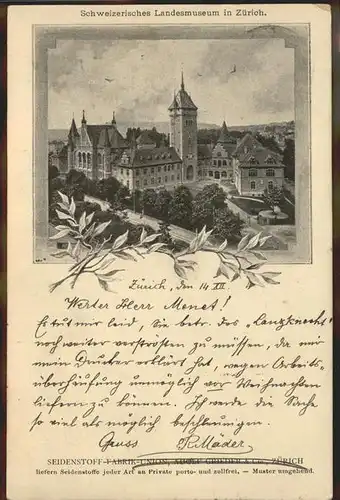 Schweizerisches Landesmuseum in Zürich.
Zürich, den 14 XII.
Werter Herr Menet!
Es tut mir leid, Sie betr. des "Lanzknecht"
noch weiter vertrösten zu müssen, da mir
mein Drucker erklärt hat, wegen Arbeits-
überhäufung unmöglich vor Weihnachten
liefern zu können. Ich werde die Sache
so viel als möglich beschleunigen.
Gruss R. Mäder
SEIDENSTOFF-FABRIK-UNION, ADOLF GRIEDER & Cie, ZÜRICH
liefern Seidenstoffe jeder Art an Private porto- und zollfrei. — Muster umgehend.